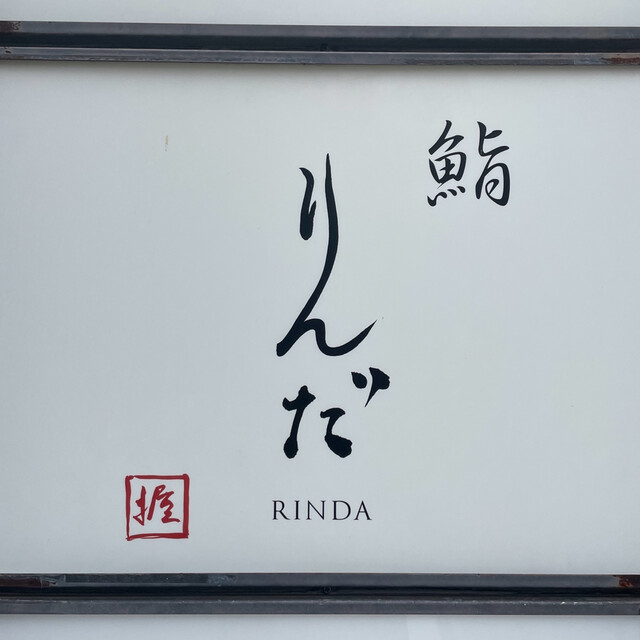 鮨
りんだ
RINDA
握